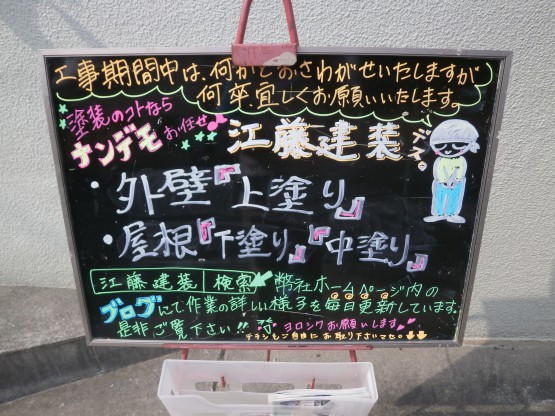 工事期間中は、何かとおさわがせいたしますが
何卒、宜しくお願いいたします。
塗装のコトなら
ナンデモお任せ♪
江藤建装
デス。
・外壁『上塗り』
・屋根『下塗り』『中塗り』
江藤建装 検索
弊社ホームページ内の
ブログにて作業の詳しい様子を毎日更新しています。
是非ご覧下さい!!
ヨロシクお願いします
チラシもご自由にお取り下さいマセ。